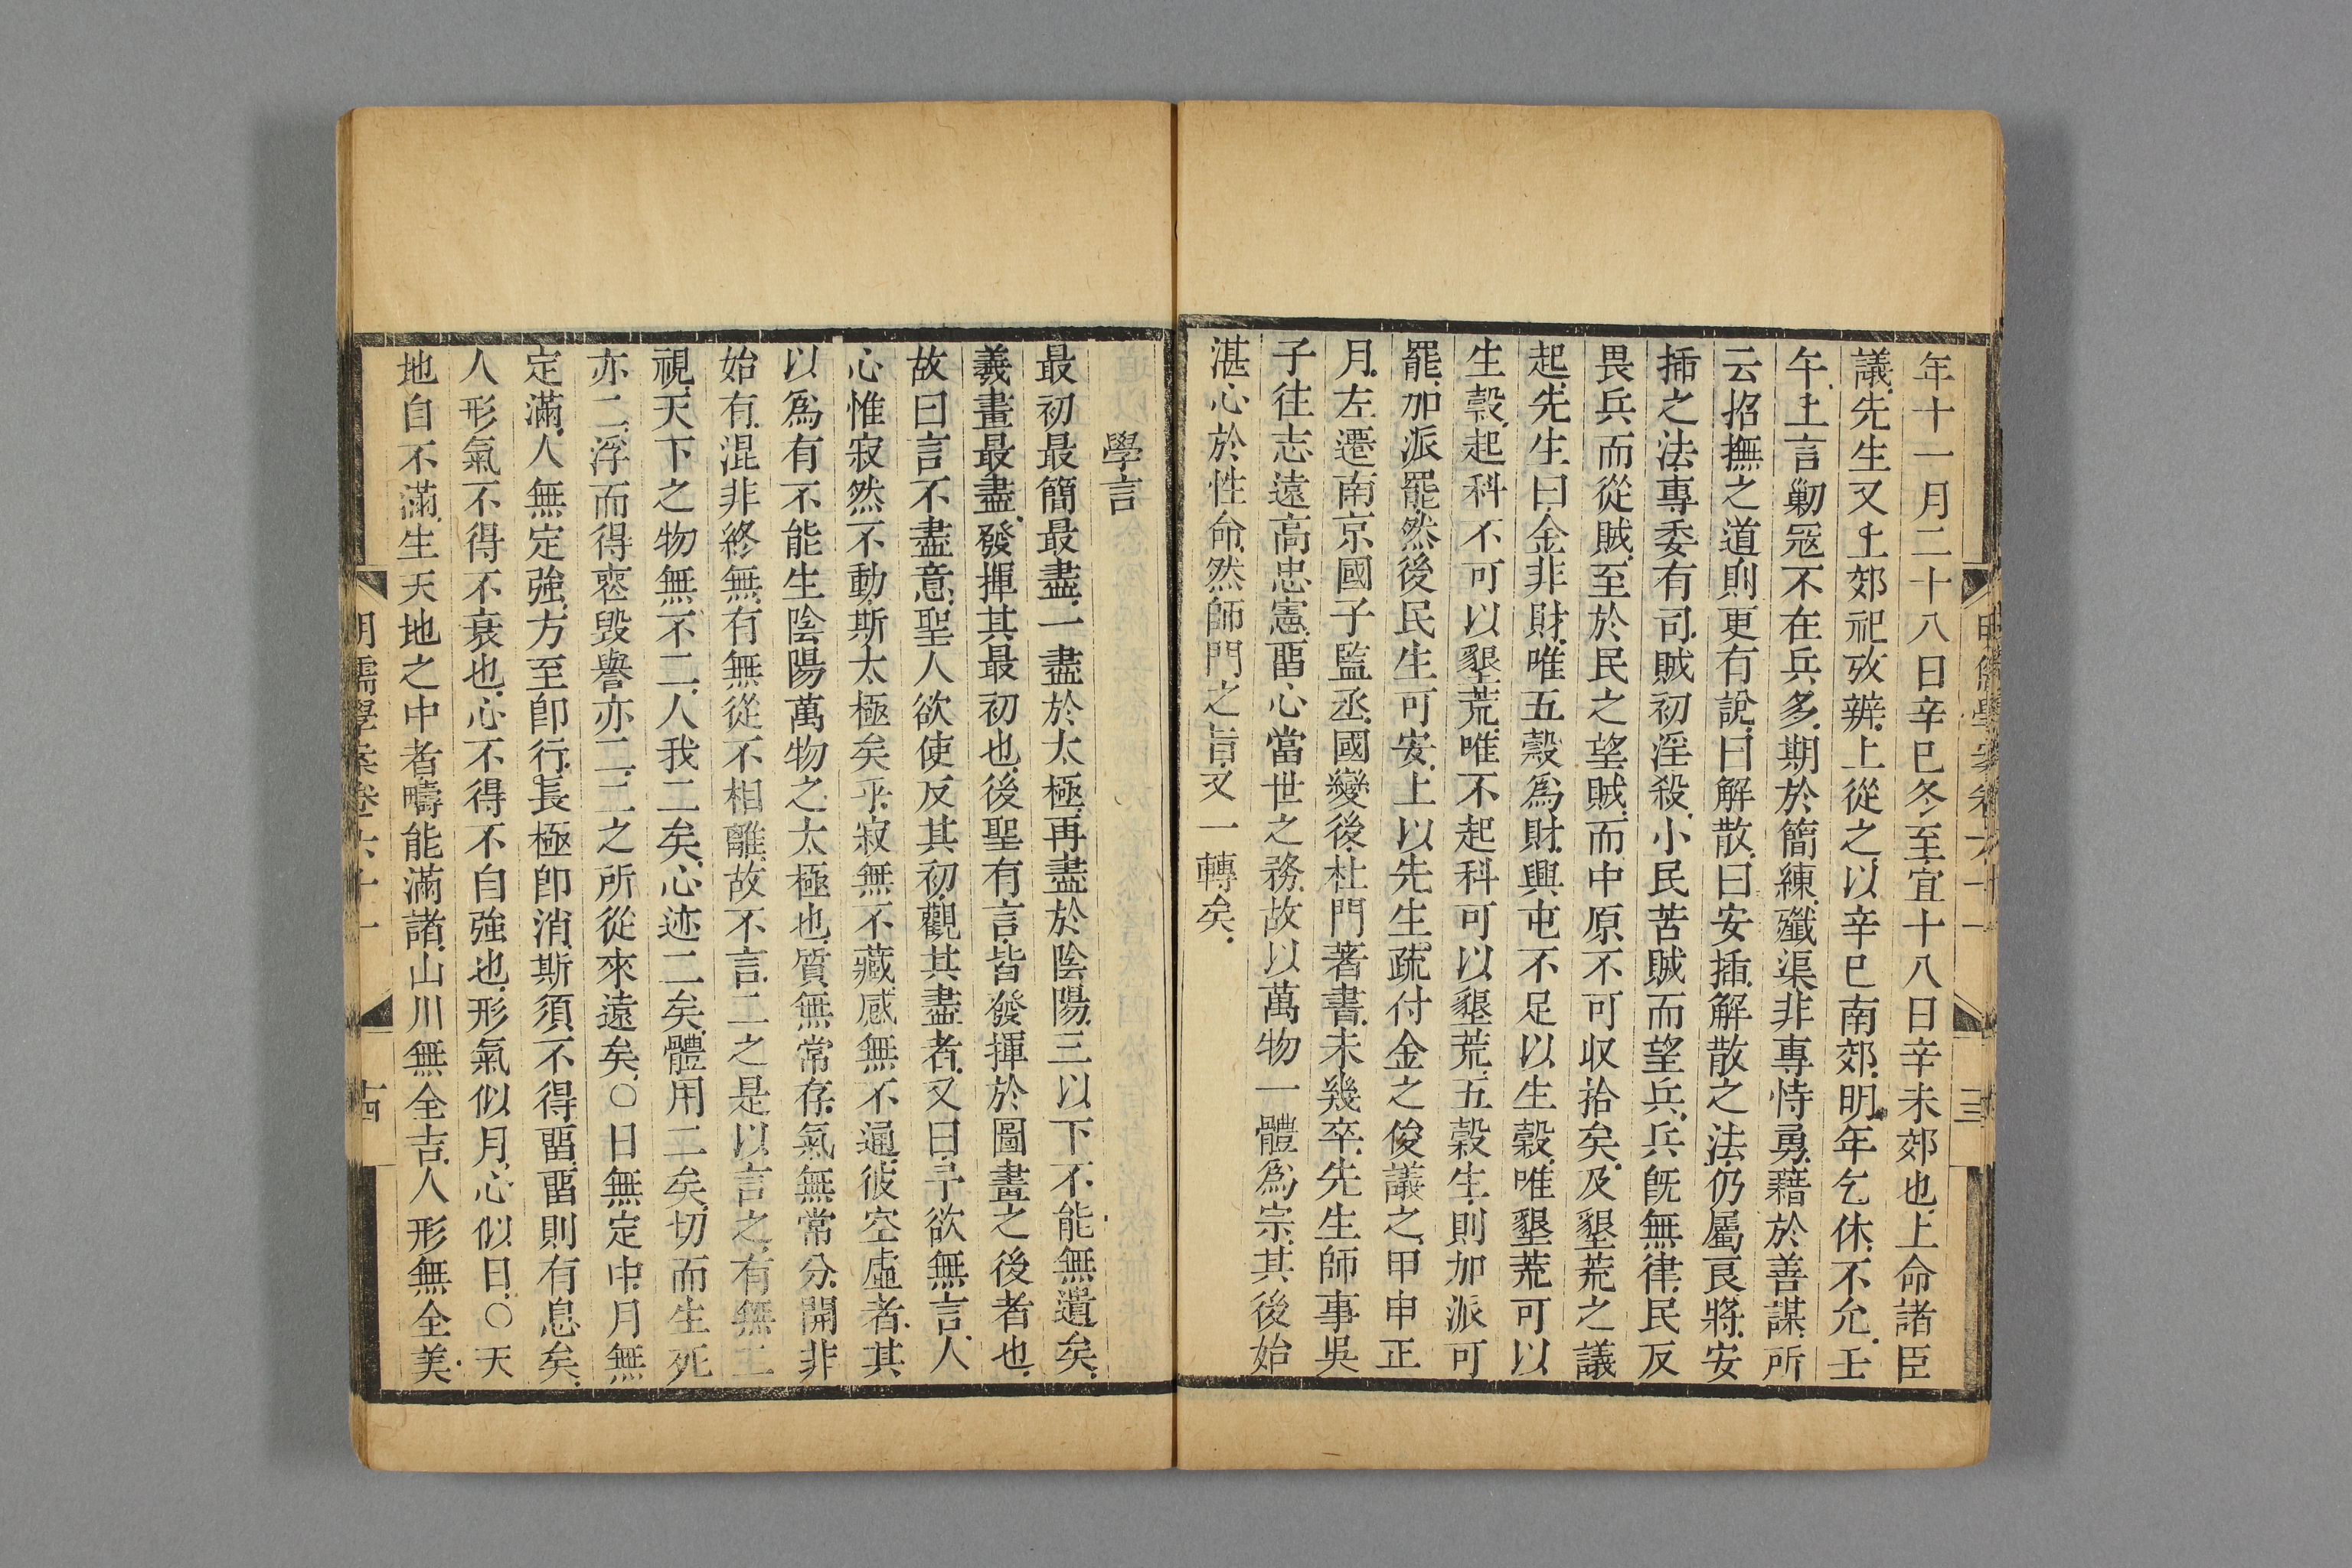 年十一月二十八日辛巳冬至宜十八日辛未郊也上命諸臣
議先生又上郊祀攷辨上從之以辛巳南郊明年乞休不允壬
午上言勦寇不在兵多期於簡練殲渠非專恃勇藉於善謀所
云招撫之道則更有說曰解散曰安插解散之法仍屬良將安
插之法專委有司賊初淫殺小民苦賊而望兵兵旣無律民反
畏兵而從賊至於民之望賊而中原不可收拾矣及墾荒之議
起先生曰金非財唯五穀爲財興屯不足以生穀唯墾荒可以
生穀起科不可以墾荒唯不起科可以墾荒五穀生則加派可
罷加派罷然後民生可安上以先生疏付金之俊議之甲申正
月左遷南京國子監丞國變後杜門著書未幾卒先生師事吳
子往志遠高忠憲畱心當世之務故以萬物一體爲宗其後始
湛心於性命然師門之旨又一轉矣
學言
最初最簡最盡一盡於太極再盡於陰陽三以下不能無遺矣
羲畫最盡發揮其最初也後聖有言皆發揮於圖畫之後者也
故曰言不盡意聖人欲使反其初觀其盡者又曰予欲無言人
心惟寂然不動斯太極矣乎寂無不藏感無不通彼空虛者其
以爲有不能生陰陽萬物之太極也質無常存氣無常分開非
始有混非終無有無從不相離故不言二之是以言之有無二
視天下之物無不二人我二矣心迹二矣體用二矣切而生死
亦二浮而得喪毀譽亦二二之所從來遠矣○日無定中月無
定滿人無定強方至卽行長極卽消斯須不得畱畱則有息矣
人形氣不得不衰也心不得不自強也形氣似月心似日○天
地自不滿生天地之中者疇能滿諸山川無全吉人形無全美
明儒學案卷六十一
十四